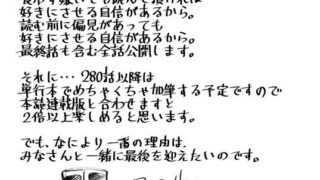 好きにさせる自信があるから。
読む前に偏見があっても
好きにさせる自信があるから。
最終話も含む全話公開します。
それに…280話以降は
単行本でめちゃくちゃ加筆する予定ですので
本誌連載版と合わせますと
2倍以上楽しめると思います。
でも、なにより一番の理由は、
みなさんと一緒に最後を迎えたいのです。